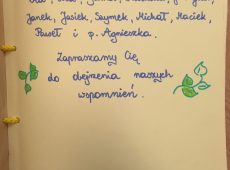 Janek, Jasiek, Szymek, Michał, Maciek,
Paweł i p. Agnieszka.
Zapraszamy Cię
do obejrzenia naszych
wspomnień.